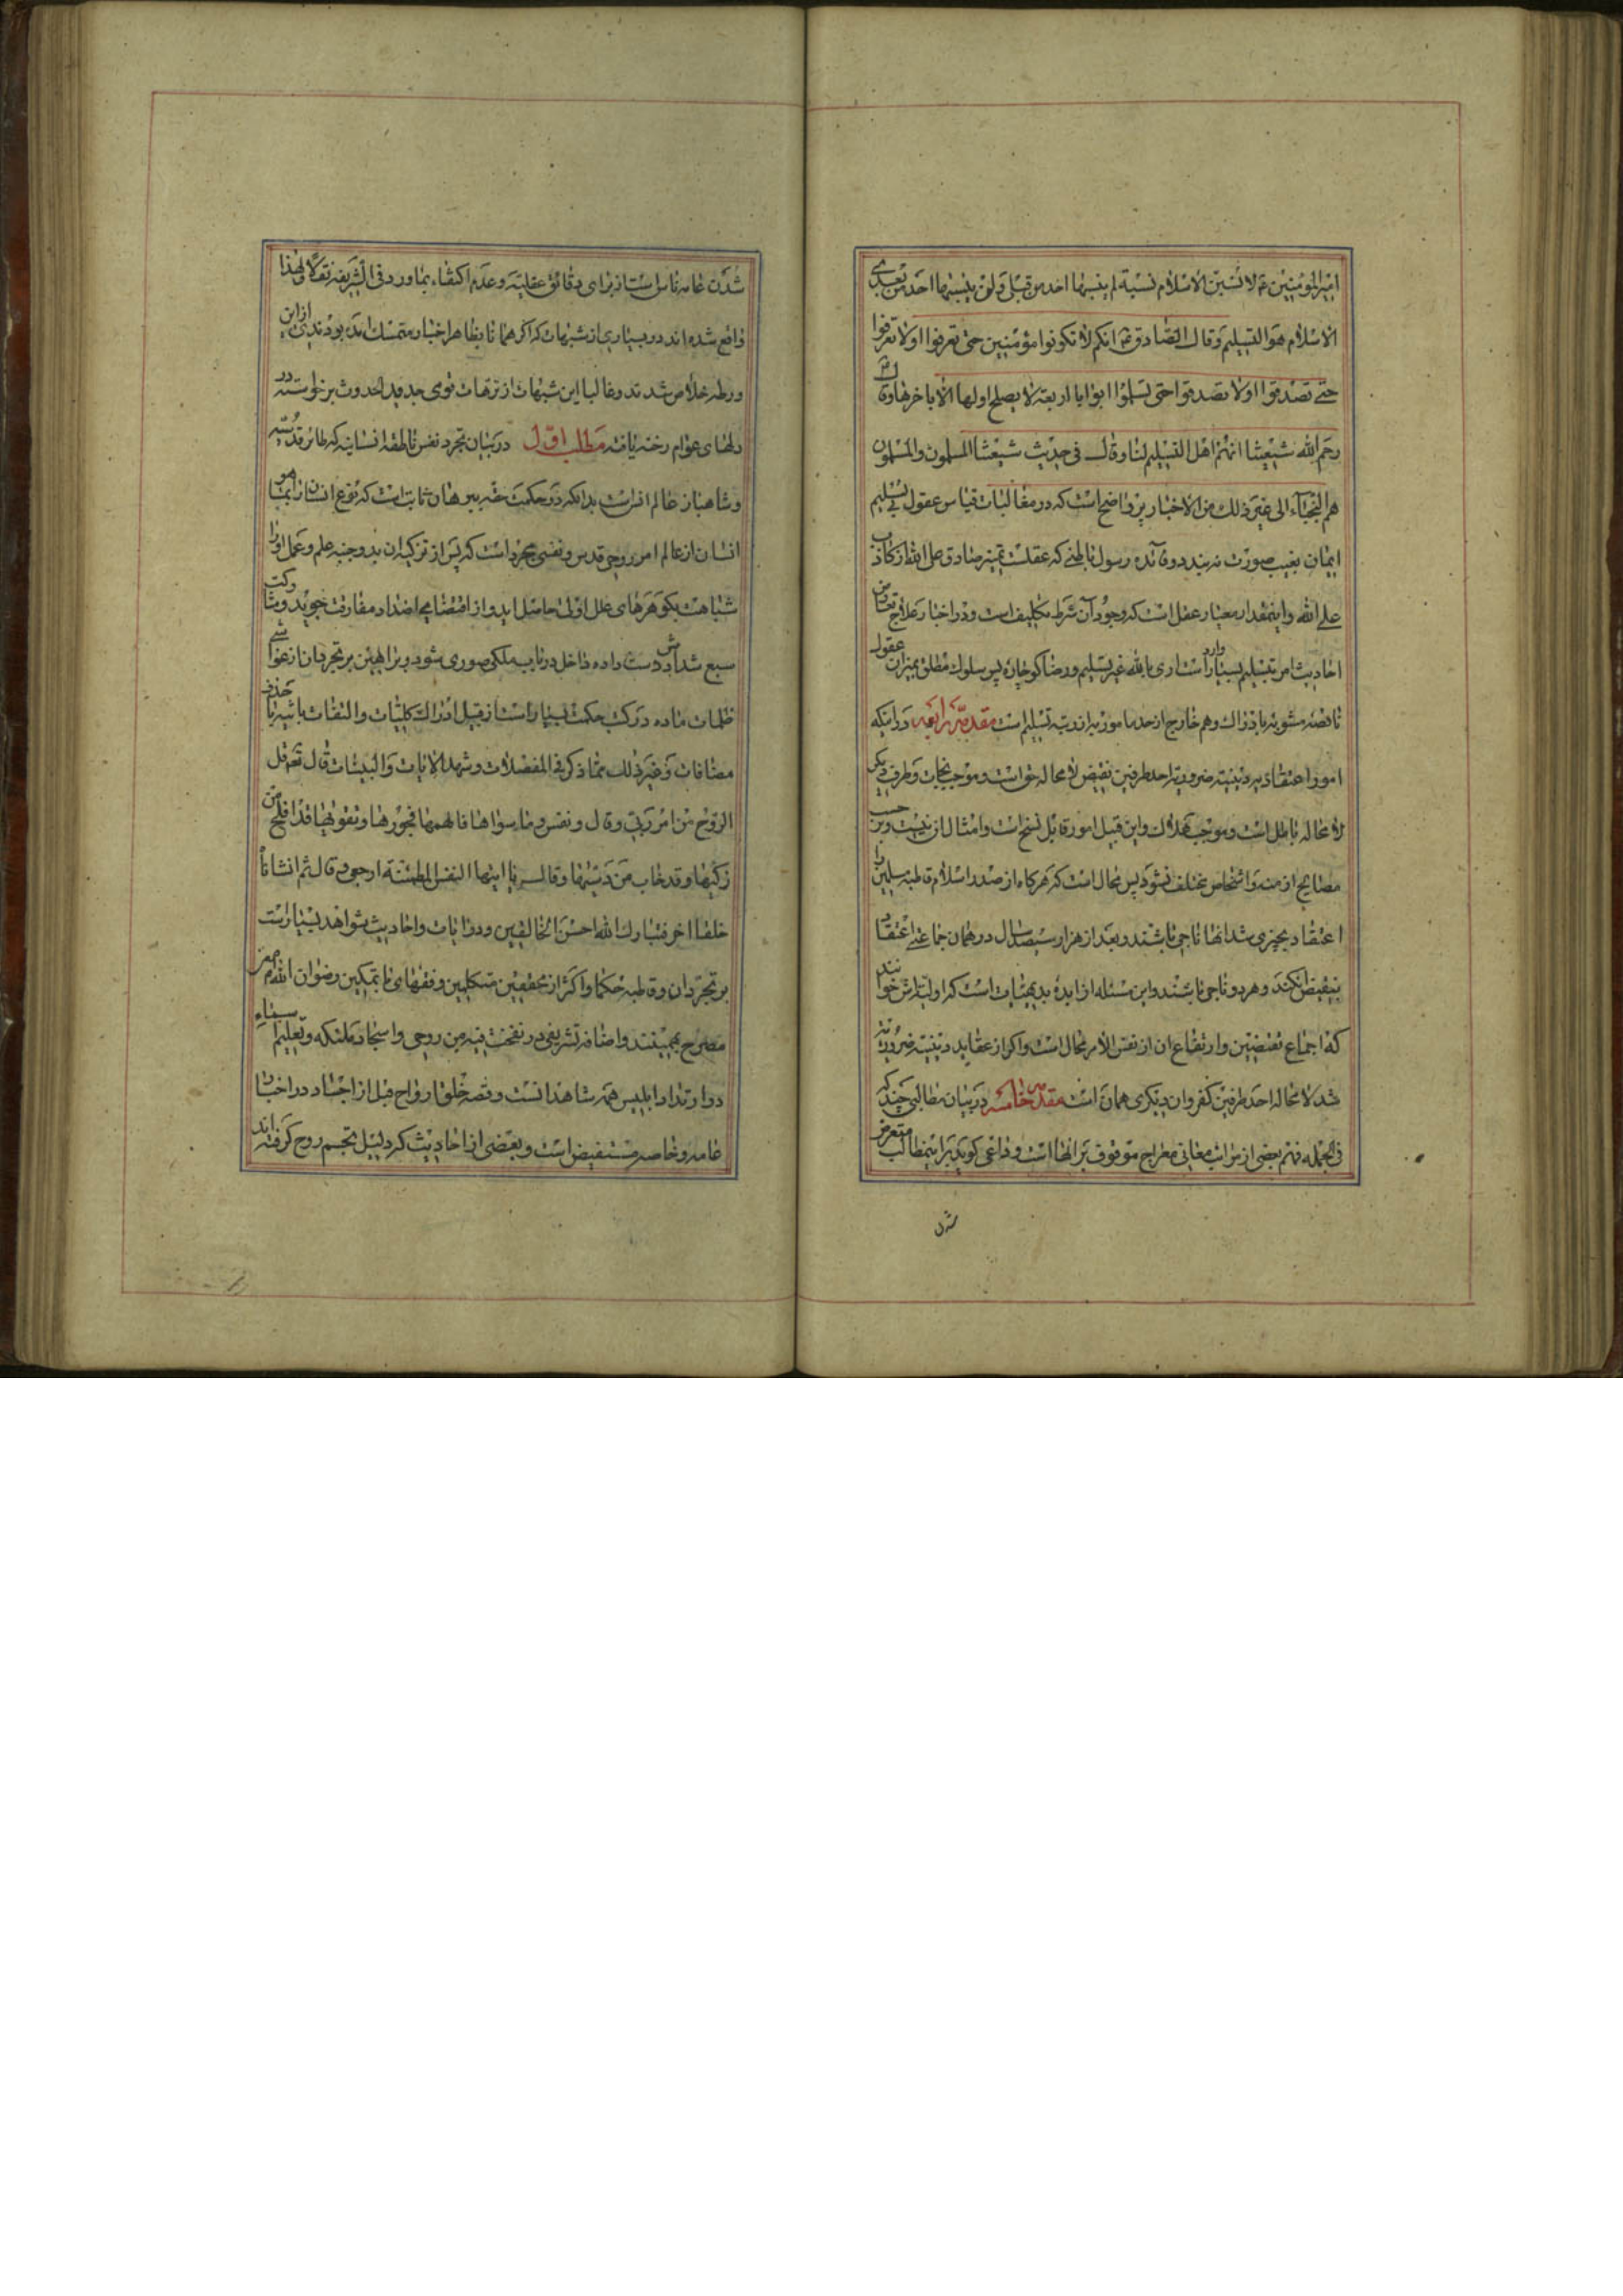 امیرالمؤمنین ع لانسبن الاسلام نسبة لم ینسبها احد من قبلی ولن ینسبها احد من بعدی
الاسلام هو التسلیم وقال الصادق ع انکم لا تکونوا مؤمنین حتی تعرفوا اولا تعرفوا
حتی تصدقوا اولا تصدقوا حتی تسلموا ابوابا اربعة لا یصلح اولها الا باخرها وقال
رحم الله شیعتنا انهم اهل التسلیم لنا وقال فی حدیث شیعتنا المسلمون والمسلمون
هم النجباء الی غیر ذلک من الاخبار پر واضحست که در مغالبات قیاس عقول تسلیم
ایمان بغیب صورت نه بندد و فائده رسول باطنی که عقلست تمیز صادق علی الله از کاذب
علی الله و اینمقدار معیار عقل است که وجود آن شرط تکلیف است و در اخبار علاج تعارض
احادیث امر بتسلیم بسیار وارد است اری بالله غیر تسلیم و رضا کو چاره پس سلوک مطلق بمیزان عقول
ناقصه مشوبه باذراک وهم خارج از حد مامور به از رتبه تسلیم است مقدمه رابعه در اینکه
امور اعتقادیه دینیه ضروریه احد طرفین نقیض لا محاله حق است و موجب نجات و طرف دیگر
لا محاله باطل است و موجب هلاک و این قبیل امور قابل نسخ است و امثال آن نیست و بر حسب
مصالح ازمنه و اشخاص مختلف نشود پس محال است که هرکاه از صدر اسلام قاطبه مسلمین را
اعتقاد بچیزی شد انها ناجی باشند و بعد از هزار سیصد سال در همان جماعتی اعتقاد
بنقیض انکنند و هر دو ناجی باشند و این مسئله از ابده بدیهیات است که اولیتش خوانند
که اجماع نقیضین و ارتفاع ان از نفس الامر محال است و اکر از عقاید دینیه ضروریه
شد لا محاله احد طرفین کفر و ان دیکری همان است مقدمه خامسه در بیان مطالبی چند که
فی الجمله فهم بعضی از مراتب معانی معراج موقوف بر انها است و داعی کوید بر اینمطالب متعرض
شدن
شدن عامه ناس است از برای دقائق عقلیه و عدم اکتفاء بما ورد فی الشریعة نقلا و لهذا
واقع شده اند در بسیاری از شبهات که اکر همانا بظاهر اخبار متمسک شده بودندی از این
ورطه خلاص شدند و غالبا این شبهات از ترهات قومی جدید الحدوث برخواسته در
دلهای عوام رخنه یافته مطلب اول در بیان تجرد نفس ناطقه انسانیه که طائر قدسیه
و شاهباز عالم انس است بدانکه در حکمت حقه ببرهان ثابت است که نوع انسان از بما هو
انسان از عالم امر روحی قدس و نفسی مجرد است که پس از تزکیه ان بدو جنبه علم و عمل او را
شباهت بکوهرهای علل اولی حاصل اید و از اقتضای اضداد مفارقت جوید و مشارکت
سبع شدادش دست داده داخل در باب ملکی صوری شود و براهین بر تجرد ان از غواشی
ظلمات ماده در کتب حکمت بسیار است از قبیل ادراک کلیات و التفات باشیاء با حذف
مضافات و غیر ذلک مما ذکر فی المفصلات و شهد الایات و البینات قال تع قل
الروح من امر ربی و قال و نفس و ما سواها فالهمها فجورها و تقویها قد افلح من
زکیها و قد خاب من دسیها و قال یا ایتها النفس المطمئنة ارجعی و قال ثم انشاناه
خلقا اخر فتبارک الله احسن الخالقین و در ایات و احادیث شواهد بسیار است
بر تجرد ان و قاطبه حکما و اکثر از محققین متکلمین و فقهای با تمکین رضوان الله
مصرح بهمینند و اضافه تشریفی در نفخت فیه من روحی و اسجاد ملئکه و تعلیم اسماء
و ارتداد ابلیس همه شاهد انست و قصه خلق ارواح قبل از اجساد در اخبار
عامه و خاصه مستفیض است و بعضی از احادیث که دلیل تجسم روح کرفته اند